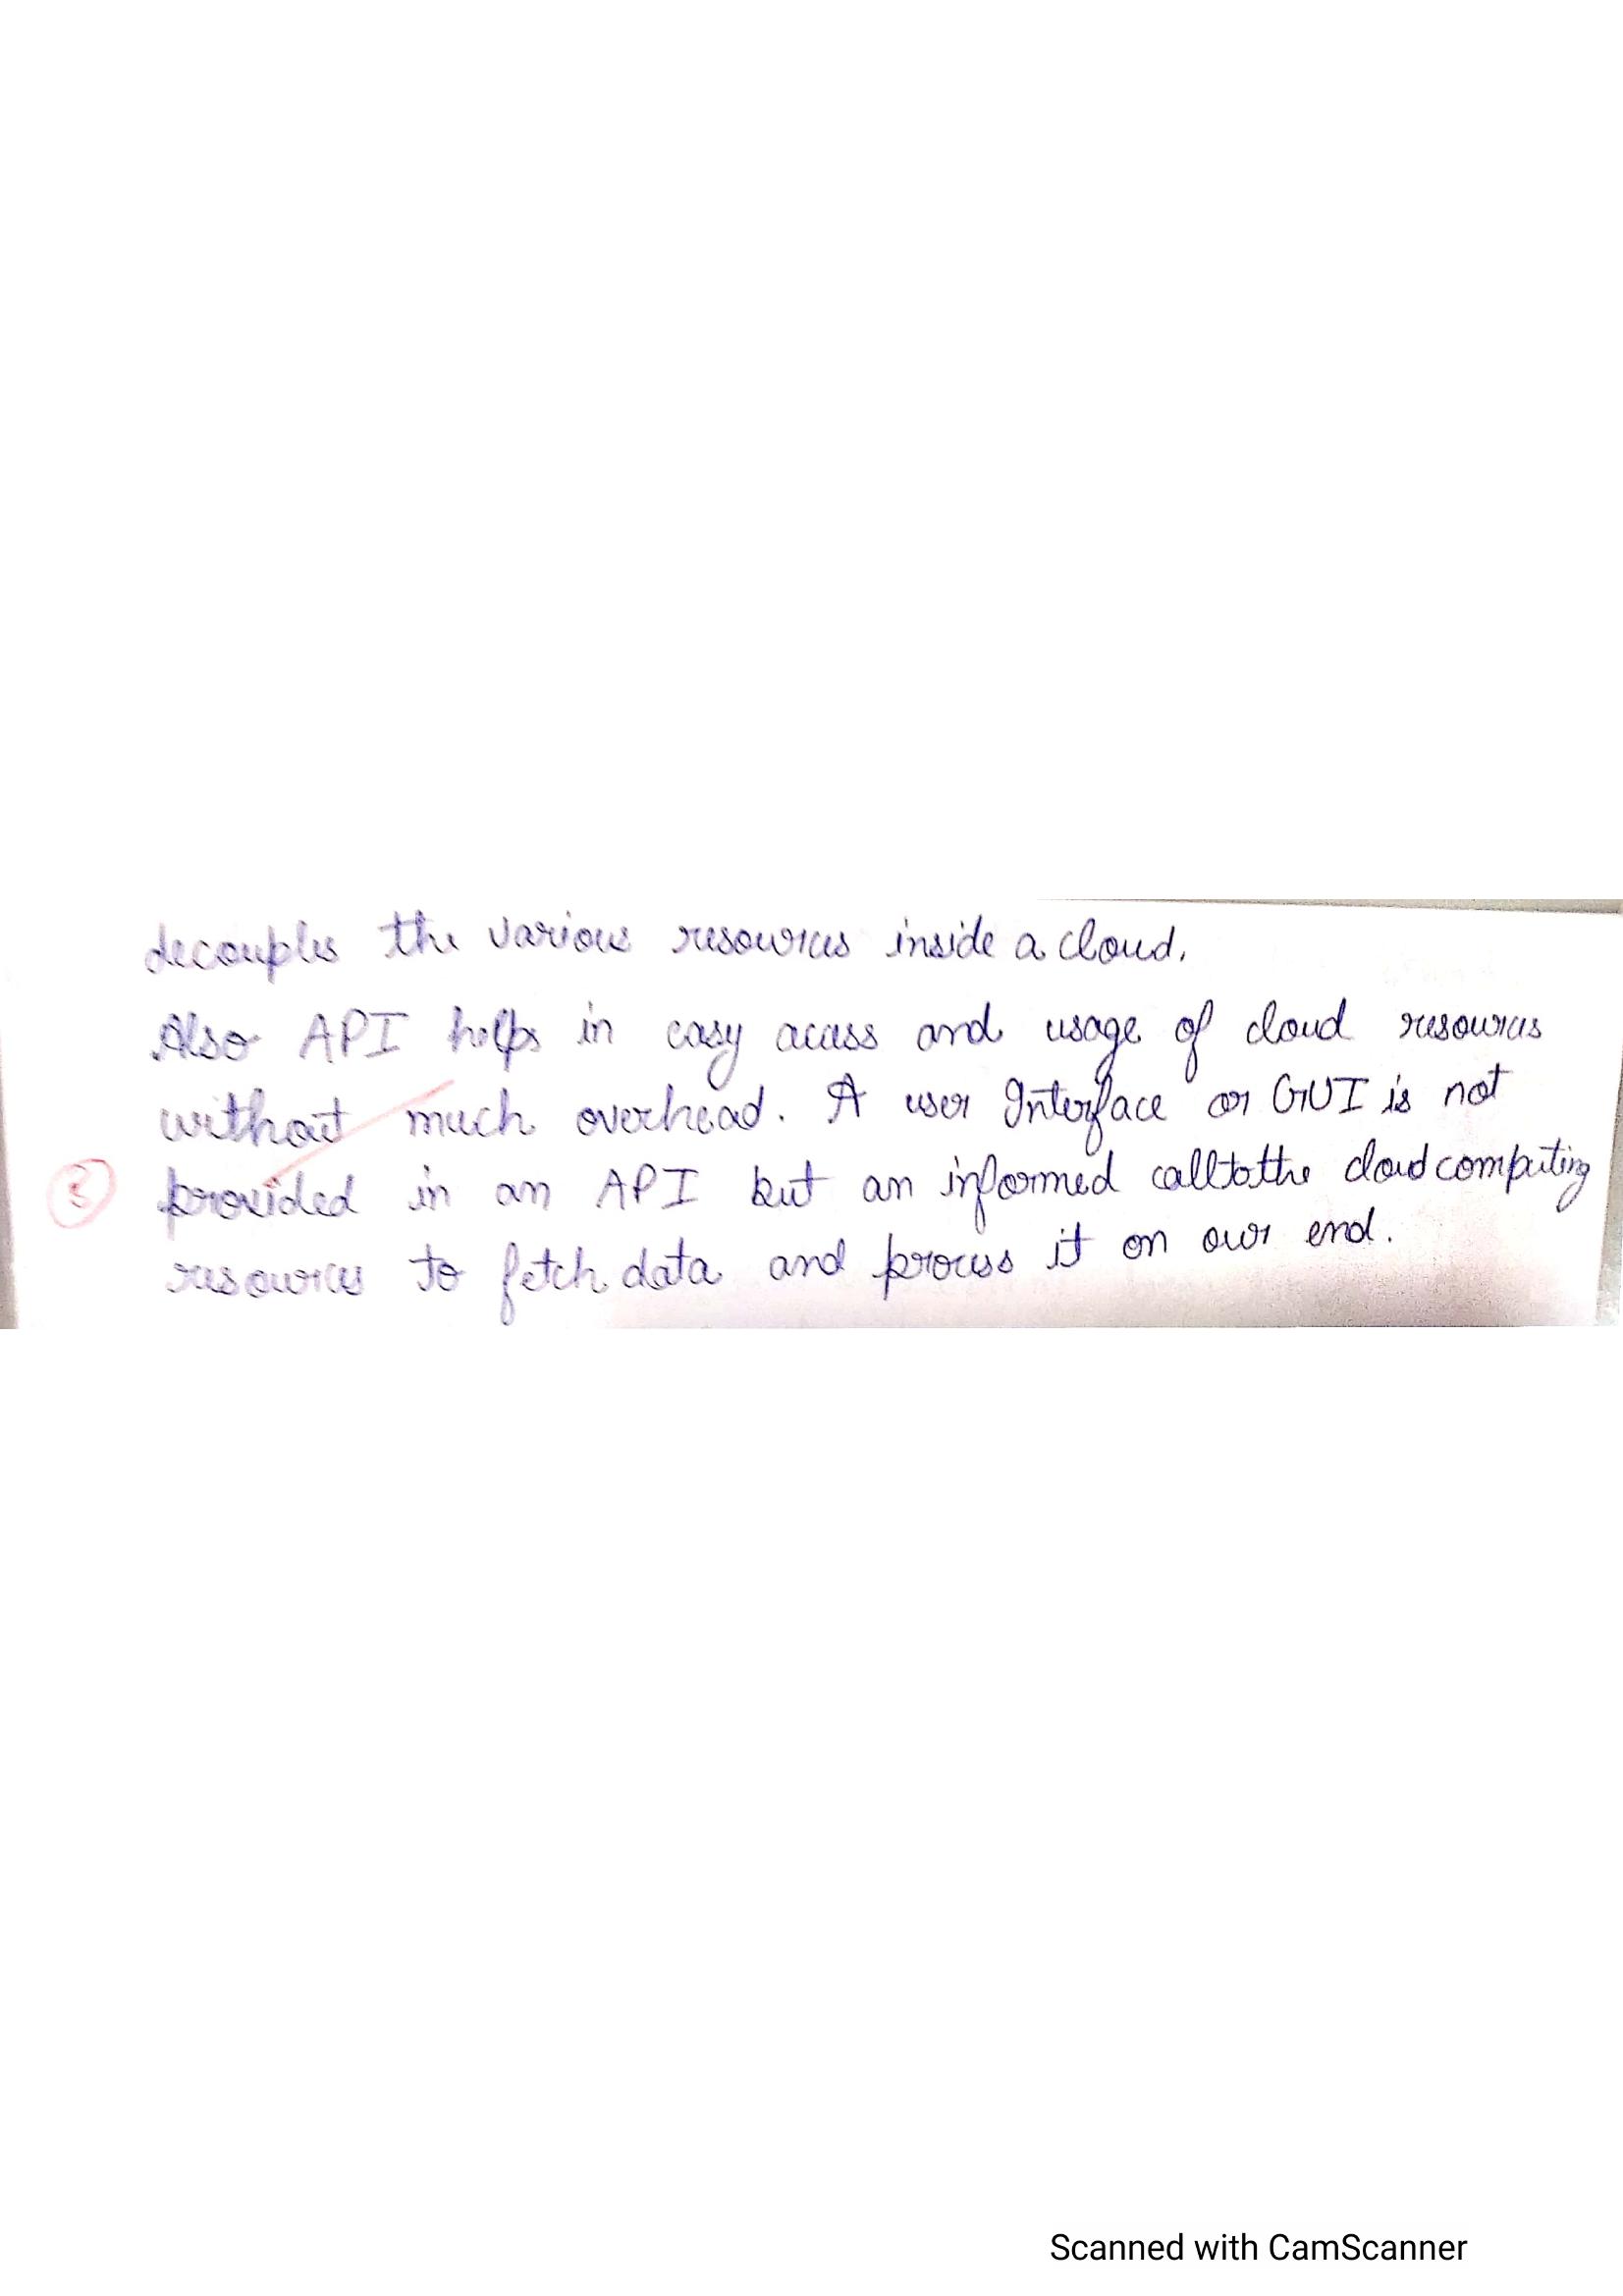 decouples the various resources inside a cloud.
Also API helps in easy access and usage of cloud resources
without much overhead. A user Interface or GUI is not
provided in an API but an informed call to the cloud computing
resources to fetch data and process it on our end.
Scanned with CamScanner